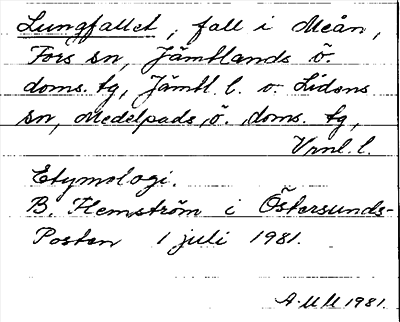 Lungfallet, fall i Meån,
Fors sn, Jämtlands ö.
doms. tg, Jämtl. l. o. Lidens
sn, Medelpads ö. doms. tg,
Vrnl. l.
Etymologi.
B. Flemström i Östersunds-
Posten 1 juli 1981.
A.M.M 1981.